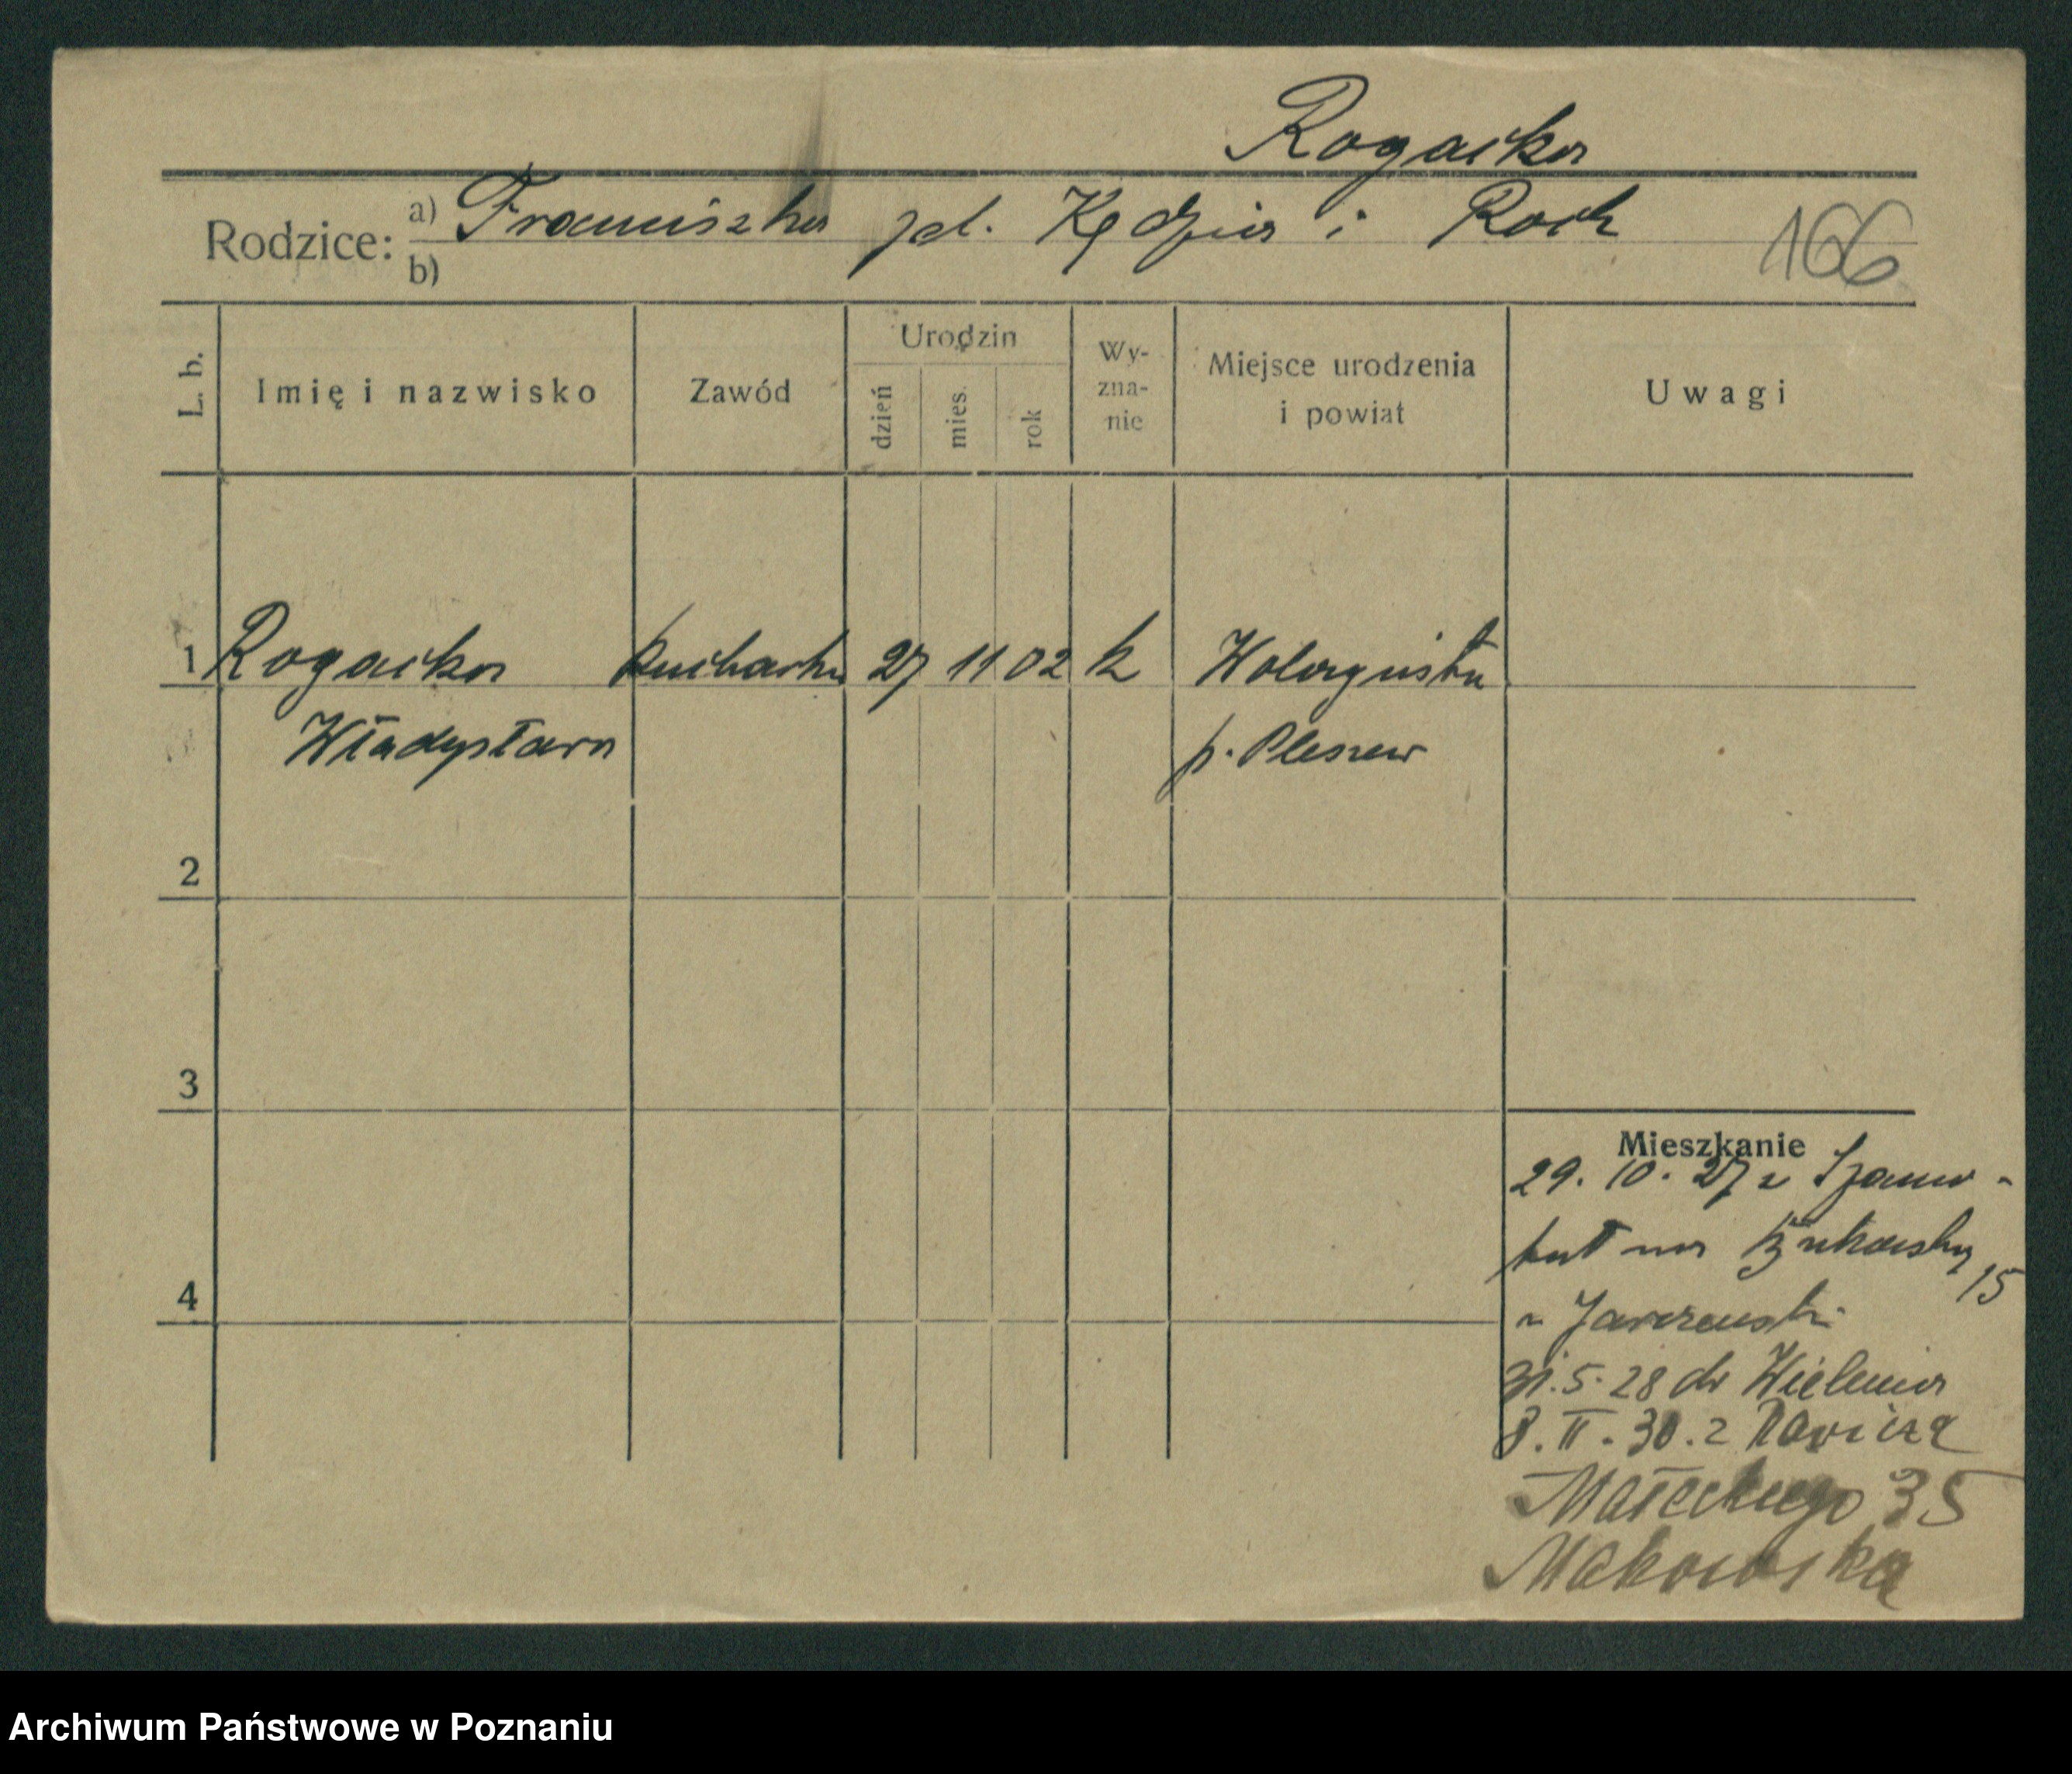 Rogacka
Rodzice: a) Franciszka zd. Kędzia i Roch
b)
166
L. b.
Imię i nazwisko
Zawód
Urodzin
dzień
mies.
rok
Wy-
zna-
nie
Miejsce urodzenia
i powiat
Uwagi
1 Rogacka Kucharka 27 11 02 k
Władysława p. Pleszew
2
3
4
Mieszkanie
29. 10. 27 z Szamo-
tuł na Bukowską 15
u Jarczewski
31. 5. 28 do Wielenia
8. II. 30. z Rawicza
Małeckiego 35
Makowska
Archiwum Państwowe w Poznaniu